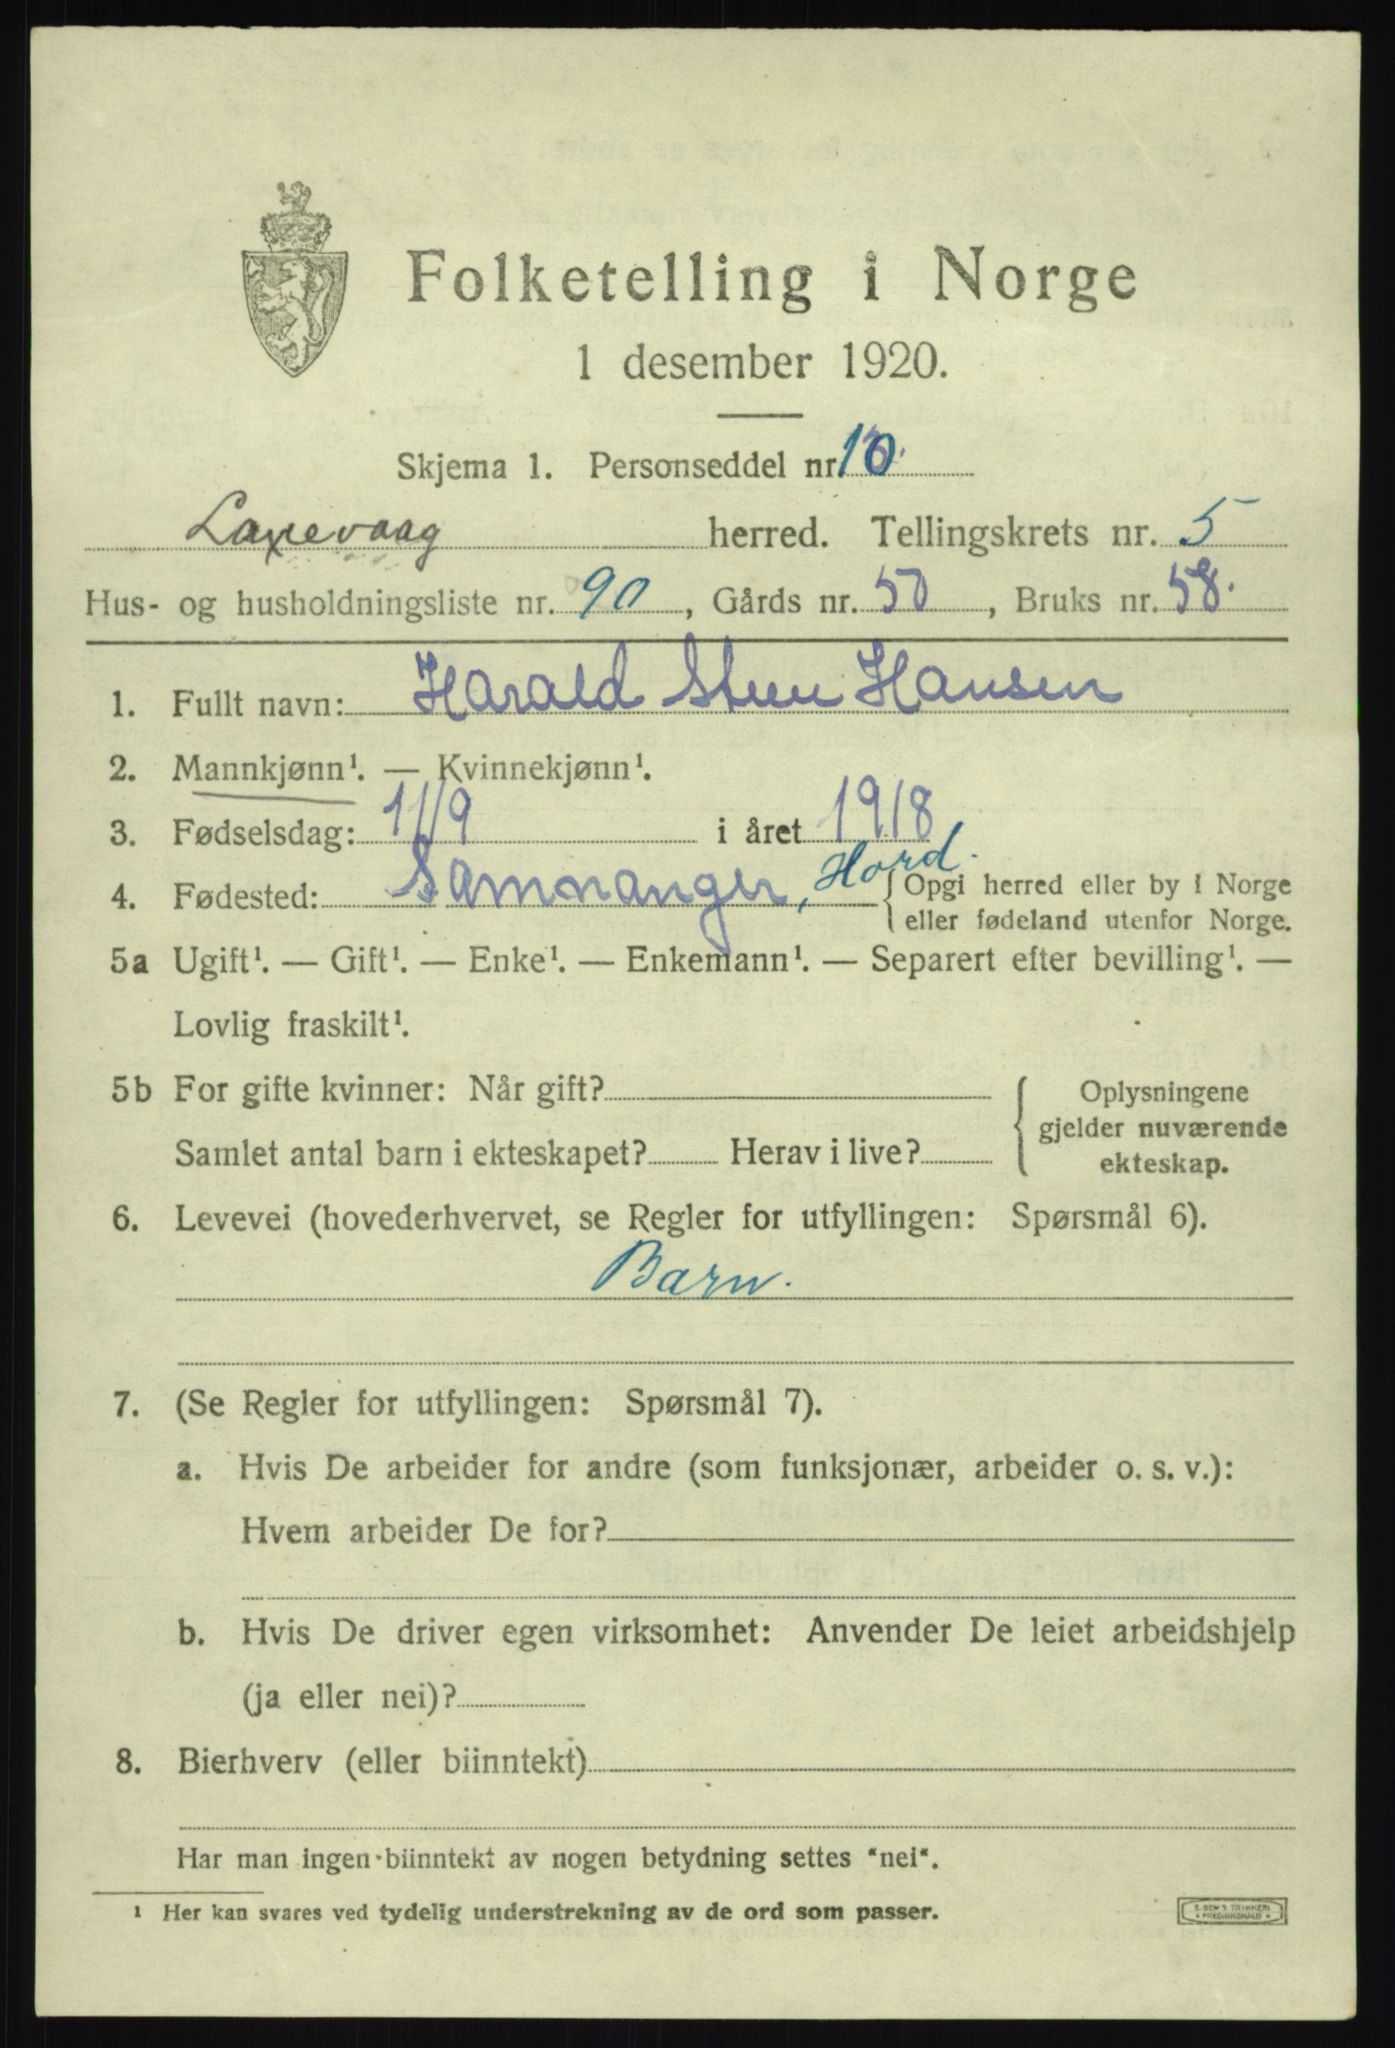 Folketelling i Norge
1 desember 1920.
Skjema 1. Personseddel nr. 10.
Laxevaag herred. Tellingskrets nr. 5
Hus- og husholdningsliste nr. 90, Gårds nr. 50, Bruks nr. 58.
1. Fullt navn: Harald Steen Hansen
2. Mannkjønn¹. — Kvinnekjønn¹.
3. Fødselsdag: 11/9 i året 1918
4. Fødested: Samnanger, Hord. { Opgi herred eller by i Norge
eller fødeland utenfor Norge.
5a Ugift¹. — Gift¹. — Enke¹. — Enkemann¹. — Separert efter bevilling¹. —
Lovlig fraskilt¹.
5b For gifte kvinner: Når gift?
Samlet antal barn i ekteskapet? Herav i live?
Oplysningene
gjelder nuværende
ekteskap.
6. Levevei (hovederhvervet, se Regler for utfyllingen: Spørsmål 6).
Barn.
7. (Se Regler for utfyllingen: Spørsmål 7).
a. Hvis De arbeider for andre (som funksjonær, arbeider o. s. v.):
Hvem arbeider De for?
b. Hvis De driver egen virksomhet: Anvender De leiet arbeidshjelp
(ja eller nei)?
8. Bierhverv (eller biinntekt)
Har man ingen biinntekt av nogen betydning settes "nei".
¹ Her kan svares ved tydelig understrekning av de ord som passer.